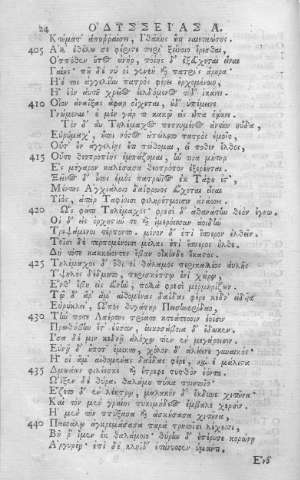 24 ὈΔΥΣΣΕΊΑΣ Α.
Κτήματ' ἀποῤῥαίσει, Ἰθάκης ἔτι ναιεταούσης.
405 Ἀλλ' ἐθέλω σε φέριστε περὶ ξείνοιο ἐρέσθαι,
Ὁππόθεν οὗτος ἀνὴρ, ποίης δ' ἐξ εὔχεται εἶναι
Γαίης· ποῦ δέ νύ οἱ γενεὴ καὶ πατρὶς ἄρουρα·
Ἠέ τιν' ἀγγελίην πατρὸς φέρει ἐρχομένοιο,
Ἢ ἑὸν αὐτοῦ χρεῖος ἐελδόμενος τόδ' ἱκάνει.
410 Οἷον ἀναΐξας ἄφαρ οἴχεται, οὐδ' ὑπέμεινε
Γνώμεναι· οὐ μὲν γάρ τι κακῷ εἰς ὦπα ἐῴκει.
Τὸν δ' αὖ Τηλέμαχος πεπνυμένος ἀντίον ηὔδα,
Εὐρύμαχ', ἤτοι νόστος ἀπώλετο πατρὸς ἐμοῖο,
Οὔτ' οὖν ἀγγελίης ἔτι πείθομαι, εἴ ποθεν ἔλθοι,
415 Οὔτε θεοπροπίης ἐμπάζομαι, ἥν τινα μήτηρ
Ἐς μέγαρον καλέσασα θεοπρόπον ἐξερέηται.
Ξεῖνος δ' οὗτος ἐμὸς πατρώϊος ἐκ Τάφου ἐστὶ,
Μέντης Ἀγχιάλοιο δαΐφρονος εὔχεται εἶναι
Υἱὸς, ἀτὰρ Ταφίοισι φιληρέτμοισιν ἀνάσσει.
420 Ὣς φάτο Τηλέμαχος· φρεσὶ δ' ἀθανάτην θεὸν ἔγνω.
Οἱ δ' εἰς ὀρχηστύν τε καὶ ἱμερόεσσαν ἀοιδὴν
Τρεψάμενοι τέρποντο, μένον δ' ἐπὶ ἕσπερον ἐλθεῖν.
Τοῖσι δὲ τερπομένοισι μέλας ἐπὶ ἕσπερος ἦλθε.
Δὴ τότε κακκείοντες ἔβαν οἶκόνδε ἕκαστος.
425 Τηλέμαχος δ' ὅθι οἱ θάλαμος περικαλλέος αὐλῆς
Ὑψηλὸς δέδμητο, περισκέπτῳ ἐνὶ χώρῳ,
Ἔνθ' ἔβη εἰς εὐνὴν, πολλὰ φρεσὶ μερμηρίζων.
Τῷ δ' ἄρ' ἅμ' αἰθομένας δαΐδας φέρε κεδνὰ ἰδυῖα
Εὐρύκλει', Ὦπος θυγάτηρ Πεισηνορίδαο,
430 Τήν ποτε Λαέρτης πρίατο κτεάτεσσιν ἑοῖσιν
Πρωθήβην ἔτ' ἐοῦσαν, ἐεικοσάβοια δ' ἔδωκεν.
Ἶσα δέ μιν κεδνῇ ἀλόχῳ τίεν ἐν μεγάροισιν·
Εὐνῇ δ' οὔποτ' ἔμικτο, χόλον δ' ἀλέεινε γυναικός·
Ἥ οἱ ἅμ' αἰθομένας δαΐδας φέρε, καί ἑ μάλιστα
435 Δμωάων φιλέεσκε καὶ ἔτρεφε τυτθὸν ἐόντα.
Ὤϊξεν δὲ θύρας θαλάμου πύκα ποιητοῖο·
Ἕζετο δ' ἐν λέκτρῳ, μαλακὸν δ' ἔκδυνε χιτῶνα·
Καὶ τὸν μὲν γραίης πυκιμηδέος ἔμβαλε χερσίν.
Ἡ μὲν τὸν πτύξασα καὶ ἀσκήσασα χιτῶνα,
440 Πασσάλῳ ἀγκρεμάσασα παρὰ τρητοῖσι λέχεσσι,
Βῆ ῥ' ἴμεν ἐκ θαλάμοιο· θύρην δ' ἐπέρυσσε κορώνῃ
Ἀργυρέῃ· ἐπὶ δὲ κληῖδ' ἐτάνυσσεν ἱμάντι.
Ἔνθ'